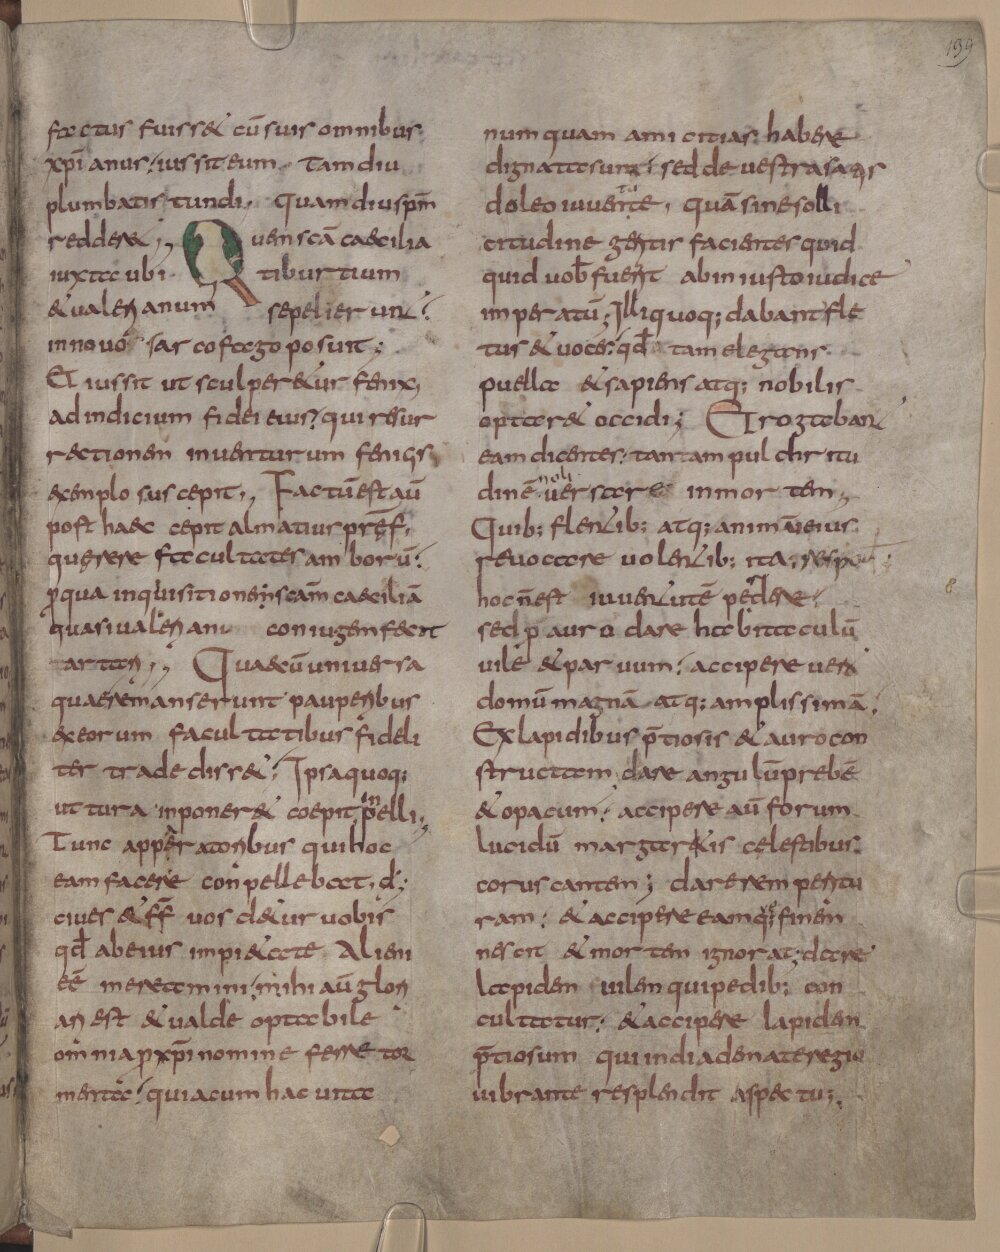 139
factus fuiss& cū suis omnibus
xp̄ianus; iussit eum tamdiu
plumbatis tundi, Quamdiu sp̄m
redder&;, Quem scā caecilia
iuxta ubi tiburtium
& ualerianum sepelierunt;
in nouo sarcofago posuit;
Et iussit ut sculper&ur fenix,
ad indicium fidei eius, qui resur
rectionem inuenturum fenicis
exemplo suscepit, Factū est aū
post haec cepit almatius pref,
querere facultates amborū;
ꝓ qua inquisitionem scām caeciliā
quasi ualeriani coniugem fecit
artari;, Quae cū uniuersa
quae remanserunt pauperibus
ex eorum facultatibus fideli
ter tradediss&; Ipsa quoq;
ut tura inponer& coepit inpelli;
Tunc apparatoribus qui hoc
eam facere conpellebat, d̄;
ciues & ff̄ uos d&ur uobis
qđ ab eius impi&ate Alieni
eē meream ini; mihi aū glori
a est & ualde optabile
omnia ꝓ xp̄i nomine ferre tor
menta; quia cum hac uita
numquam amicitias habere
dignata sum; sed de uestra satis
doleo iuuentute, quā sine solli
citudine gentis facientes quid
quid uob̄ fuerit ab iniusto iudice
imperatū; Illi quoq; dabant fle
tus & uoces; qđ tam elegans
puella & sapiens atq; nobilis
optar& occidi; Et rogabant
eam dicentes; tantam pulchritu
dinē noli uersare in mortem,
Quib; flentib; atq; animū eius
reuocare uolentib; ita,
hoc n̄ est iuuentutē perdere;
sed ꝑ auro dare habitaculū
uile & paruum; accipere uero
domū magnā atq; amplissimā;
Ex lapidibus p̄tiosis & auro con
structam dare angulū prebē
& opacum; accipere aū forum
lucidū margar&is celestibus
coruscantem; dare rem peritu
ram; & accipere eam quę finem
nescit & mortem ignorat; dare
lapidem uilem qui pedib; con
culcatur; & accipere lapidem
p̄tiosum qui in diademate regio
uibrante resplendit aspectu;